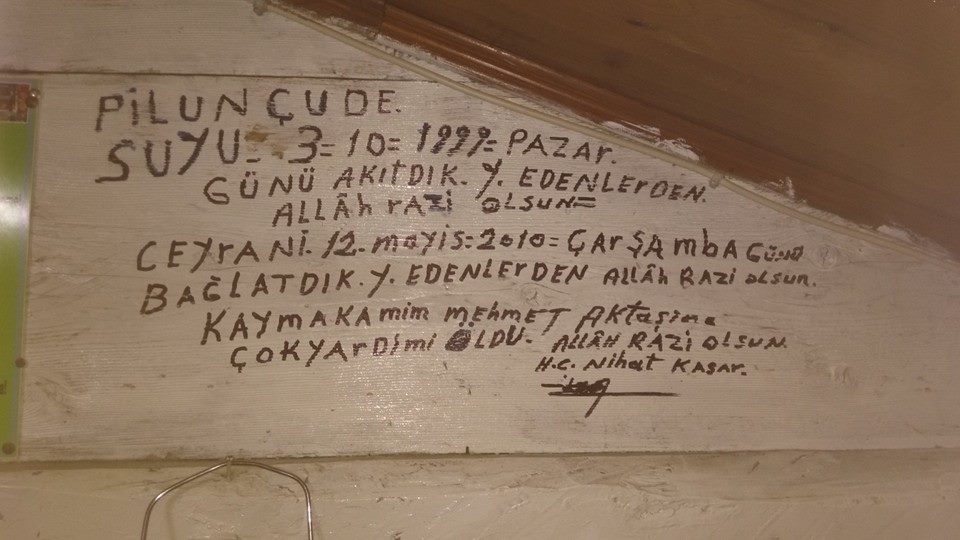 PİLUNÇUDE.
SUYU= 3=10= 1999= PAZAr.
GÜNÜ AKITDIK. Y. EDENLErDEN.
ALLÂh rAZİ OLSUN=
CEYrANİ. 12. mayis=2010= ÇArŞAmbA GÜNÜ
BAĞLATDIK. Y. EDENLErDEN Allâh RAZİ olsun.
KAYmAKAmim mEhmET AKtaşıma
ÇOKYArDimi OLDU. ALLÂH RAZİ OLSUN.
H.C. Nihat Kasar.